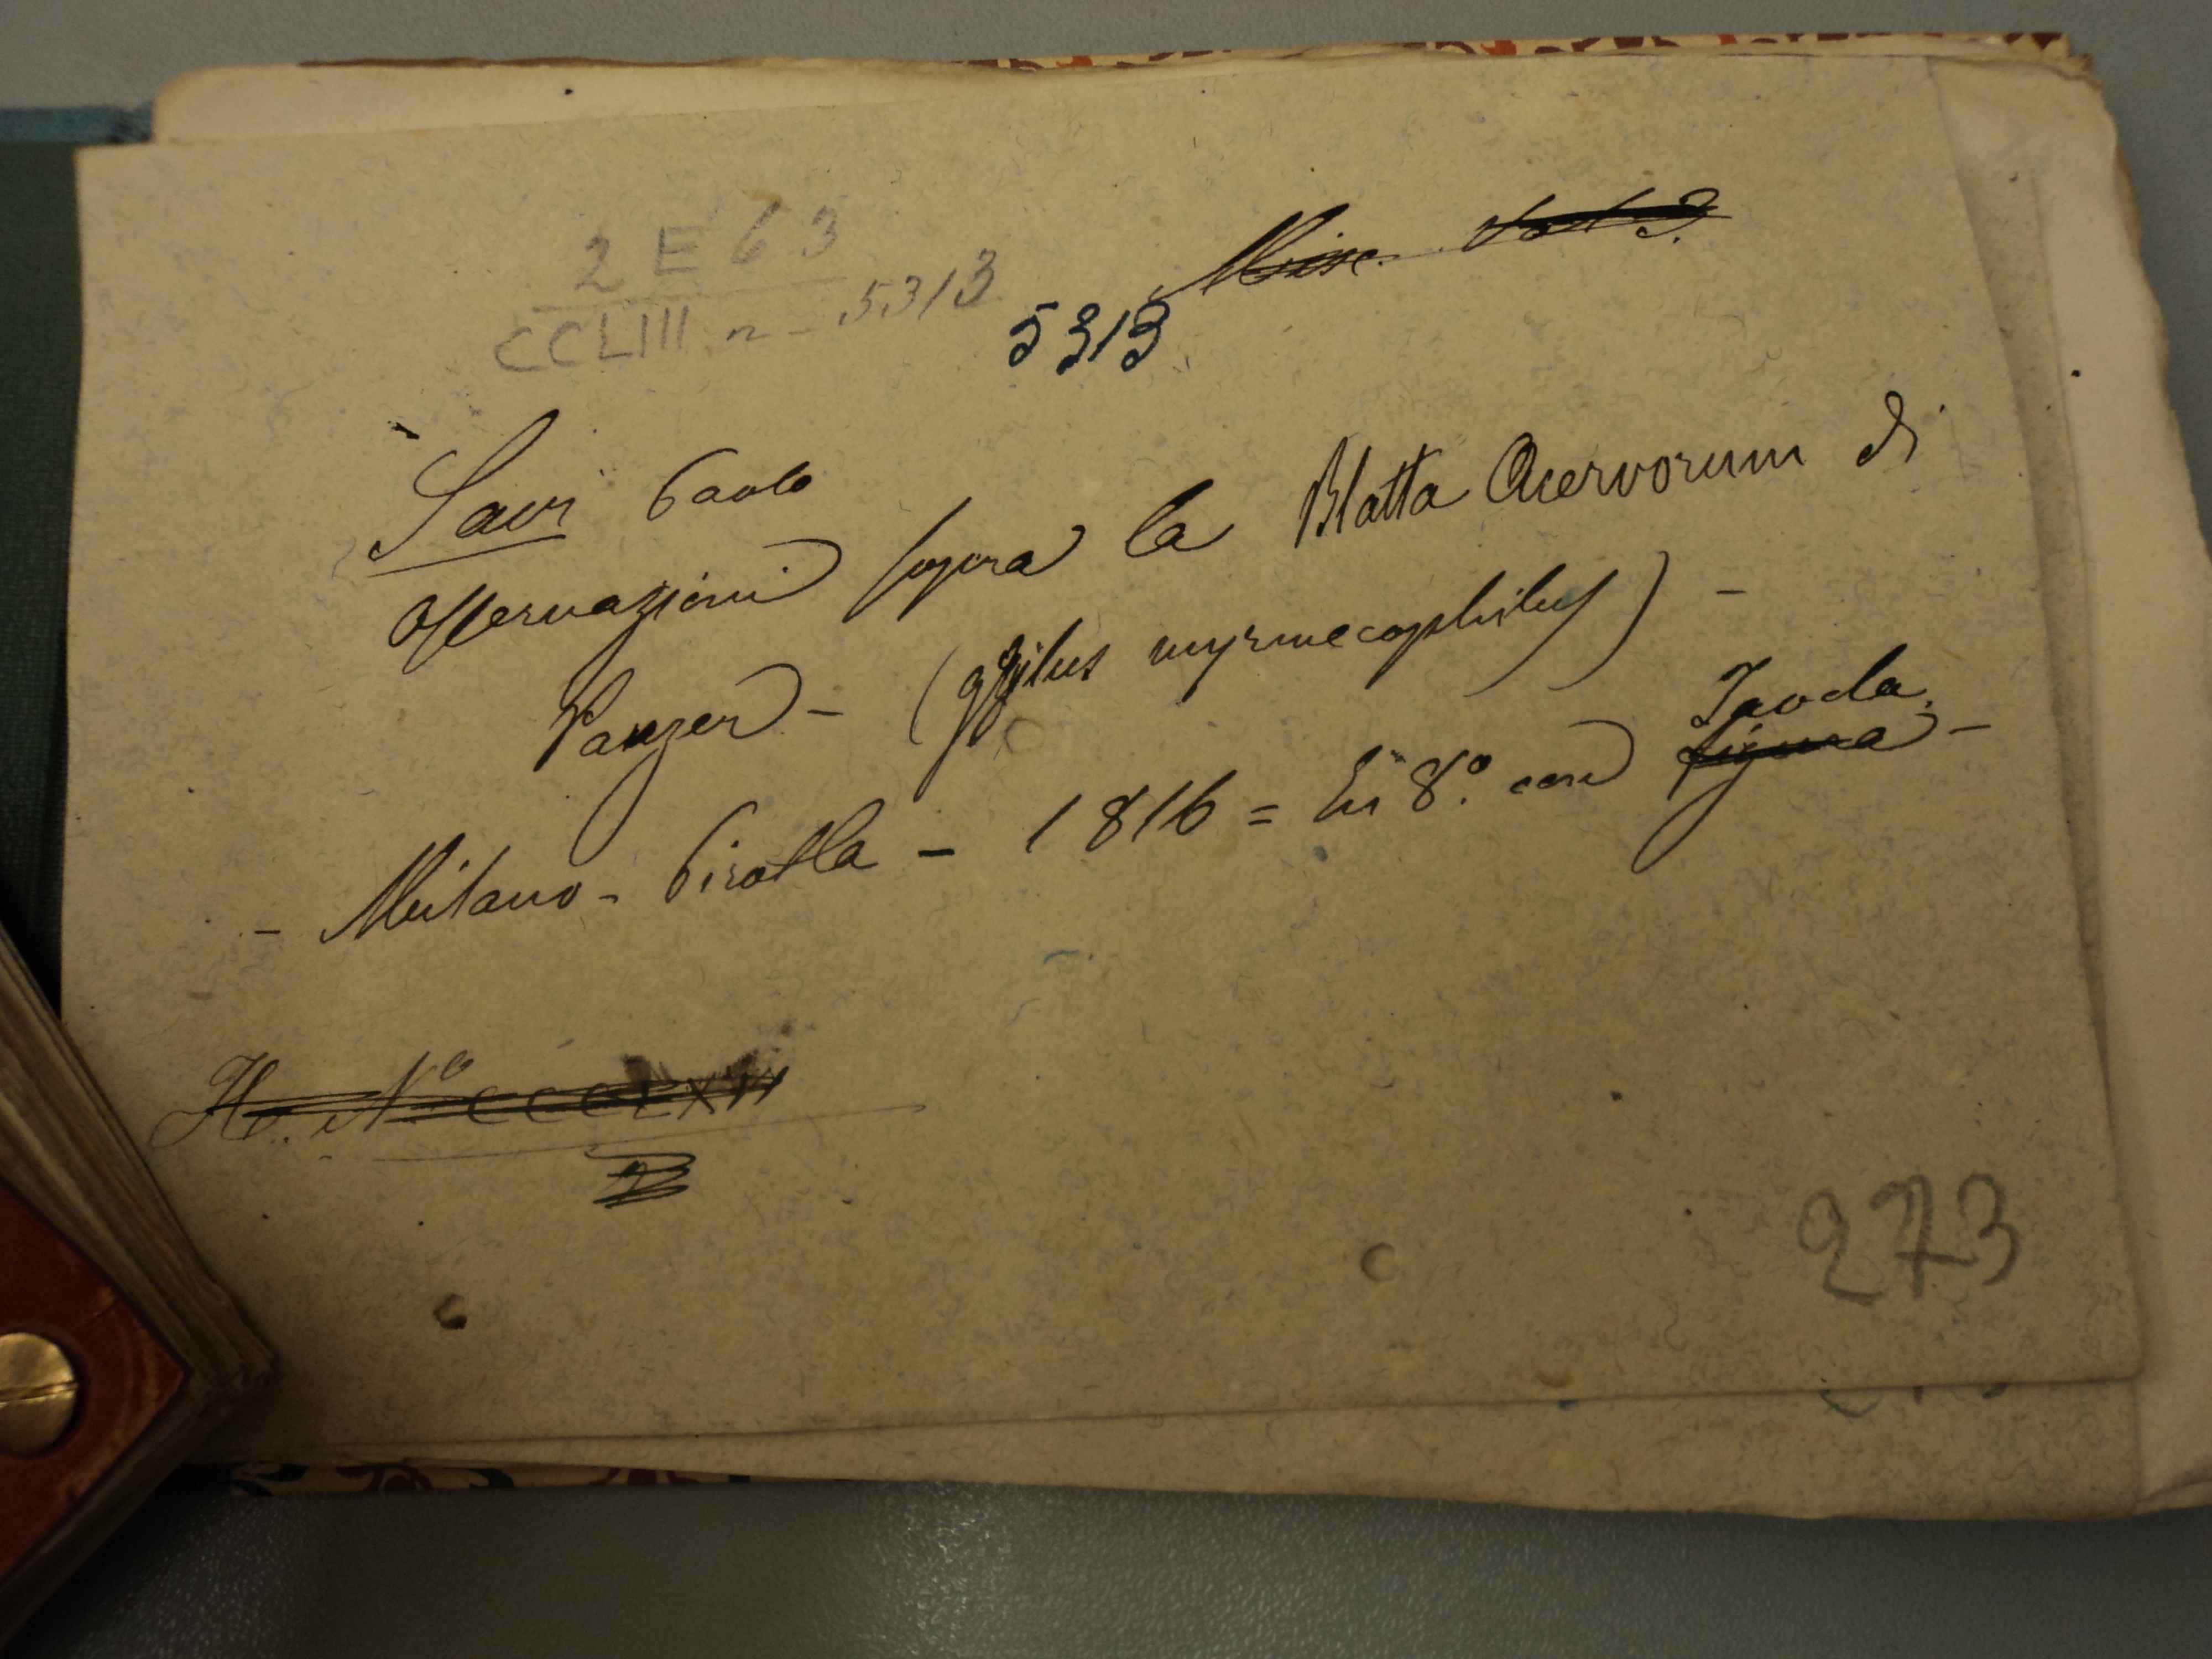 2 E 63
CCLIII n - 5313
Misc.
5313
Savi Paolo
Osservazioni sopra la Blatta Acervorum di
Panzer - (gryllus myrmecophilus) -
Tavola.
- Milano - Pirotta - 1816 = In 8.° con figura -
H. N.°
273